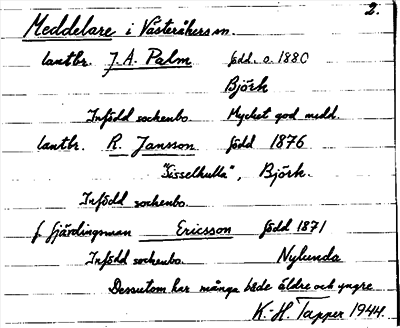 2.
Meddelare i Västeråkers sn.
lantbr. J. A. Palm född. o. 1880
Björk
Infödd sockenbo. Mycket god medd.
lantbr. R. Jansson född 1876
"Sisselhulla", Björk.
Infödd sockenbo.
f. fjärdingsman Ericsson född 1871
Infödd sockenbo. Nylunda
Dessutom har många både äldre och yngre
K. H. Tapper 1944.